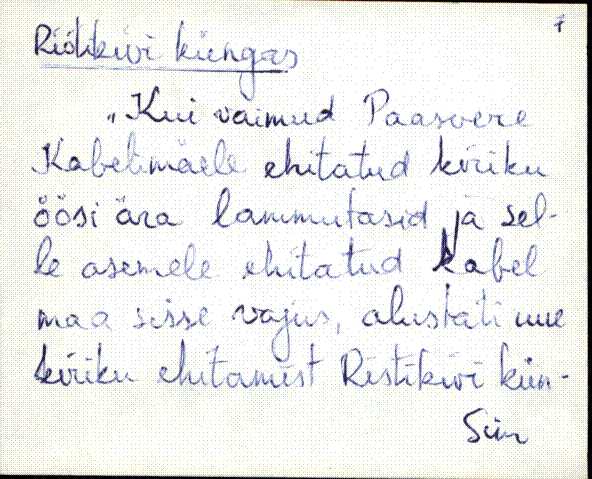 7
Ristikivi küngas
„Kui vaimud Paasvere
Kabelimäele ehitatud kiriku
öösi ära lammutasid ja sel-
le asemele ehitatud kabel
maa sisse vajus, alustati uue
kiriku ehitamist Ristikivi kün-
Siin